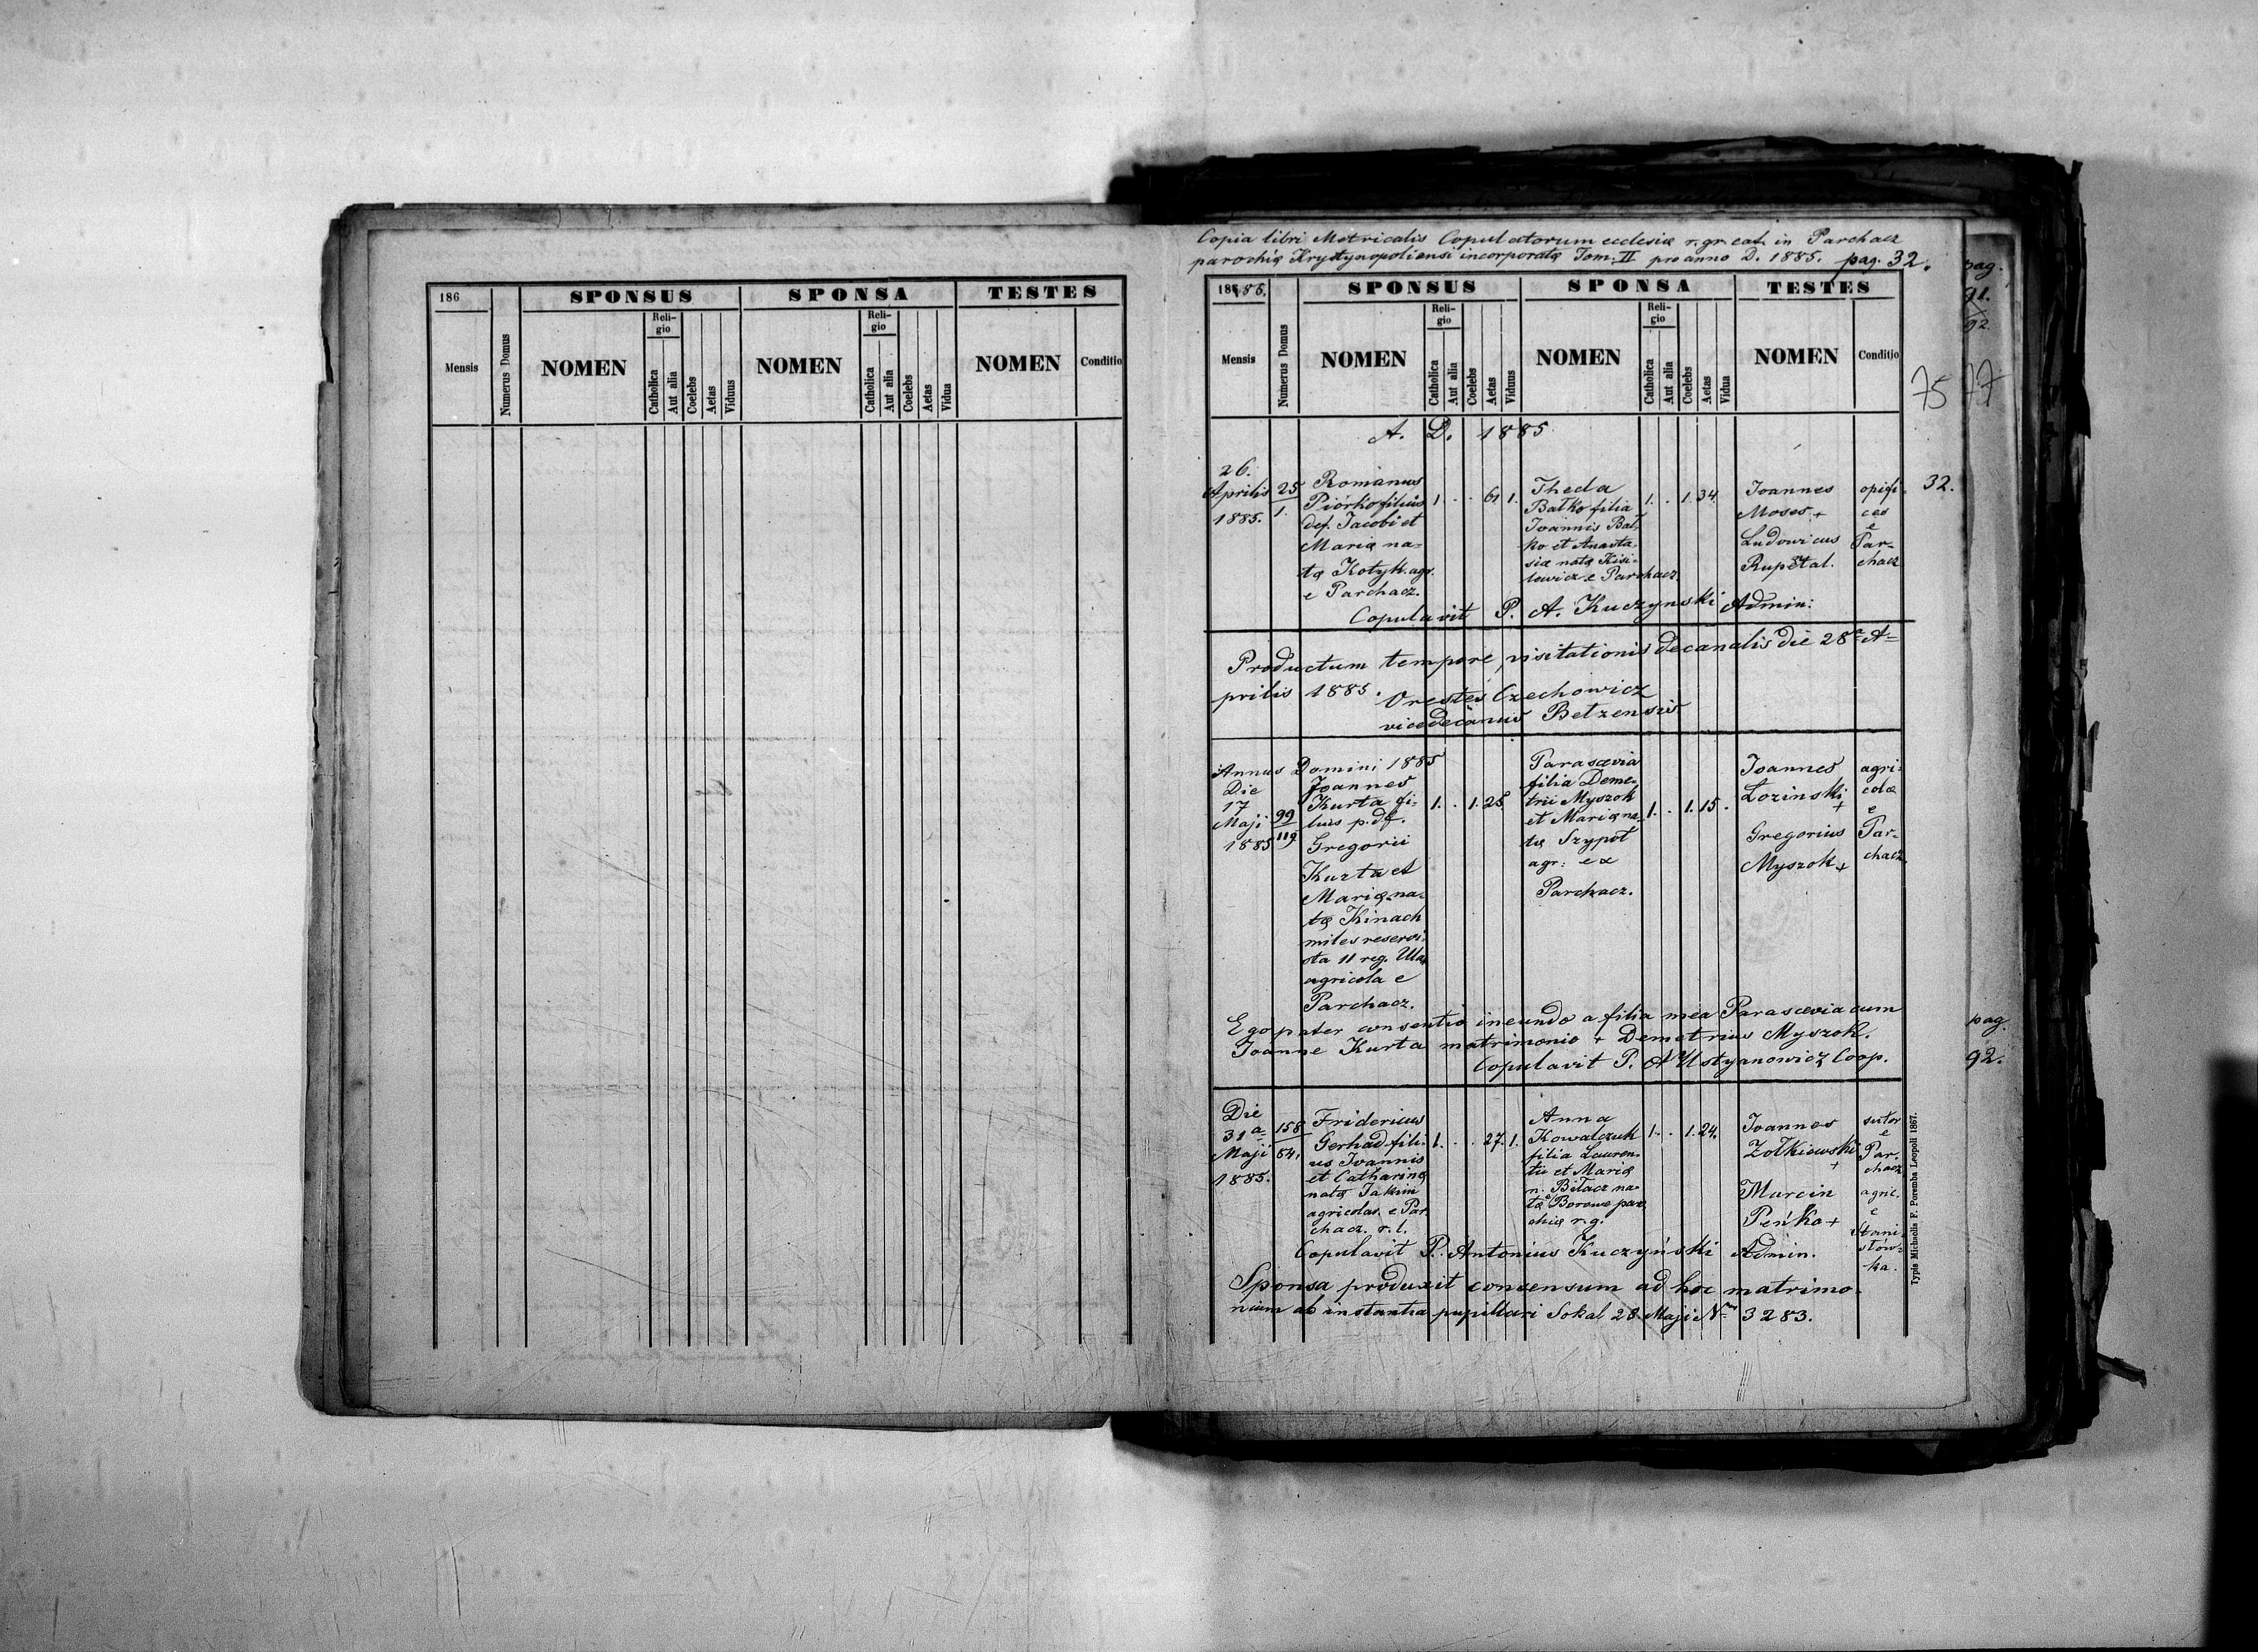 186
SPONSUS
SPONSA
TESTES
Mensis
Numerus Domus
NOMEN
Reli-
gio
Catholica
Aut alia
Coelebs
Aetas
Viduus
NOMEN
Reli-
gio
Catholica
Aut alia
Coelebs
Aetas
Vidua
NOMEN
Conditio
Copia libri Metricalis Copulatorum ecclesiæ r. gr. cat. in Parchacz
parochiæ Krystynopoliensi incorporatæ Tom. II pro anno D. 1885. pag. 32.
pag.
91.
92
75 77
1885.
SPONSUS
SPONSA
TESTES
Mensis
Numerus Domus
NOMEN
Reli-
gio
Catholica
Aut alia
Coelebs
Aetas
Viduus
NOMEN
Reli-
gio
Catholica
Aut alia
Coelebs
Aetas
Vidua
NOMEN
Conditio
A. D. 1885
26.
Aprilis
1885.
25
1.
Romanus
Piórko filius
def. Jacobi et
Mariæ na-
tæ Kotyk. agr.
e Parchacz.
1. . . 61 1.
Theda
Bałko filia
Joannis Bał-
ko et Anasta-
siæ natæ Kisi-
lewicz e Parchacz
1. . 1. 34.
Joannes
Moses +
Ludovicus
Rupetal.
opifi-
ces
e
Par-
chacz
32.
Copulavit P. A. Kuczynski Admin:
Productum tempore visitationis decanalis die 28ª A=
prilis 1885. Orestes Czechowicz
vicedecanus Betzensis
Annus Domini 1885
Die
17
Maji
1885
99
119
Joannes
Kurta fi-
lius p. df.
Gregorii
Kurta et
Mariæ na-
tæ Kinach
miles reservi-
sta 11 reg. Ulan
agricola e
Parchacz.
1. . 1. 25
Parascevia
filia Deme-
trii Myszok
et Mariæ na-
tæ Szypot
agr: ex
Parchacz.
1. . 1. 15.
Joannes
Lozinski
+
Gregorius
Myszok +
agri-
colæ
e
Par-
chacz.
Ego pater consentio ineundo a filia mea Parascevia cum
Joanne Kurta matrimonio + Demetrius Myszok.
Copulavit P. A Ustyanowicz Coop.
pag.
92.
Die
31ª
Maji
1885.
158
64.
Fridericus
Gerhad fili-
us Joannis
et Catharinæ
natæ Jakim
agricolas. e Par-
chacz. r. l.
1. . . 27. 1.
Anna
Kowalczuk
filia Lauren-
tii et Mariæ
n. Bitacz na-
ta e Borowe par-
ochiæ r. g.
1. . 1. 24.
Joannes
Zołkiewski
+
Marcin
Peńko +
sutor
e
Par-
chacz
agric.
e
Stani-
sław-
ka.
Copulavit P. Antonius Kuczyński Admin.
Sponsa produxit consensum ad hoc matrimo-
nium ab instantia pupillari Sokal 28 Maji Nro 3283.
Typis Michaelis F. Poremba Leopoli 1867.